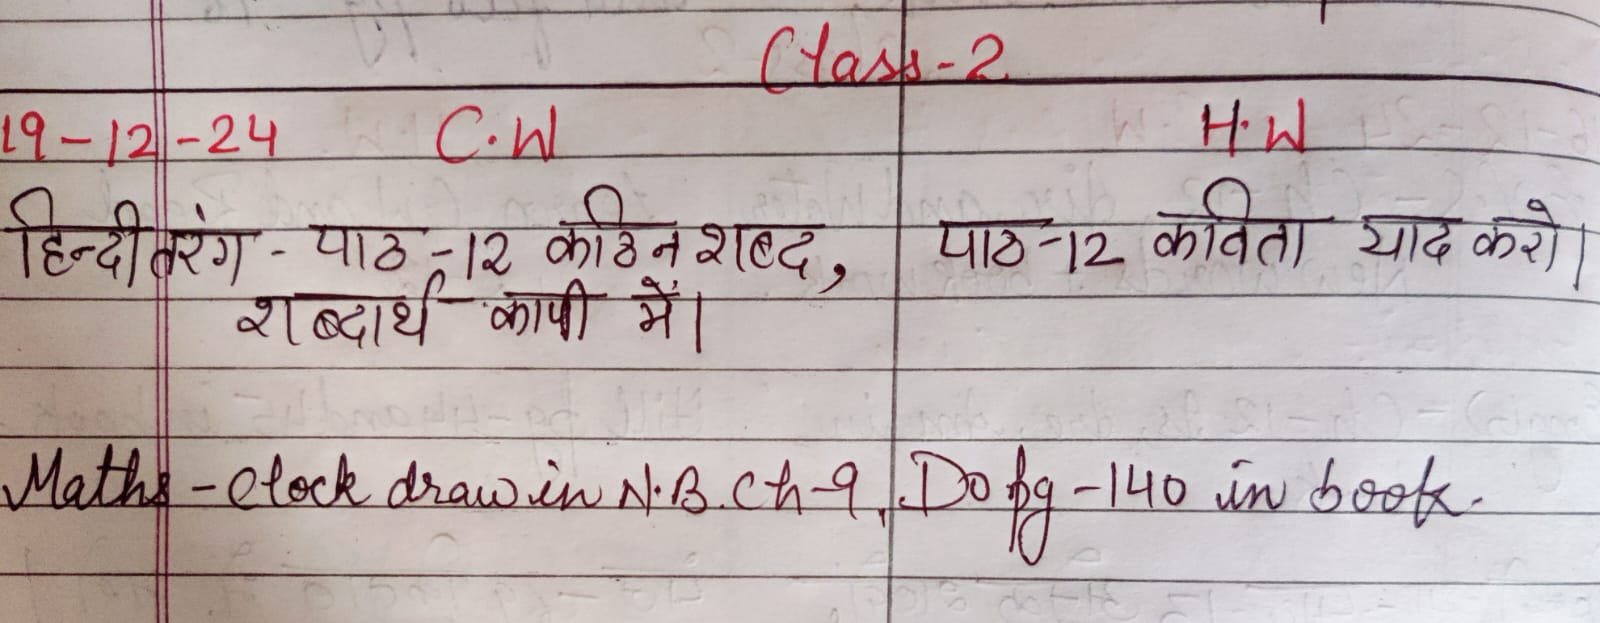 Class-2
19-12-24 C.W H.W
हिन्दी तरंग - पाठ-12 कठिन शब्द, पाठ-12 कविता याद करो।
शब्दार्थ कापी में।
Maths - Clock draw in N.B. Ch-9. Do pg-140 in book.